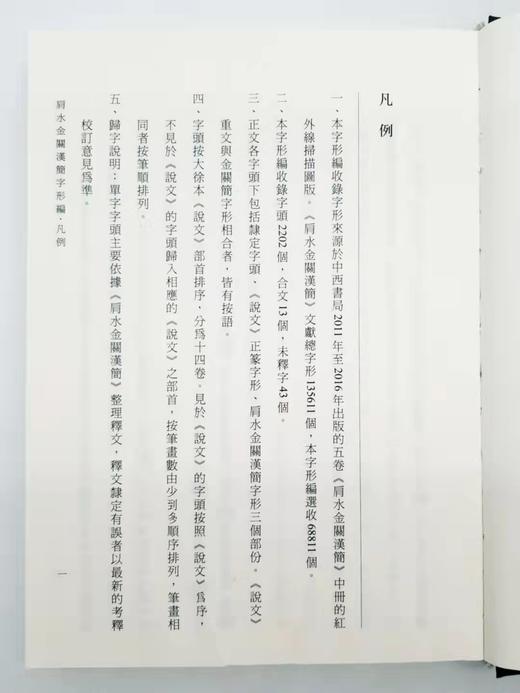 凡例
一、本字形編收錄字形來源於中西書局2011年至2016年出版的五卷《肩水金關漢簡》中冊的紅
外線掃描圖版。《肩水金關漢簡》文獻總字形135611個，本字形編選收68811個。
二、本字形編收錄字頭2202個，合文13個，未釋字43個。
三、正文各字頭下包括隸定字頭、《說文》正篆字形、肩水金關漢簡字形三個部份。《說文》
重文與金關簡字形相合者，皆有按語。
四、字頭按大徐本《說文》部首排序，分爲十四卷。見於《說文》的字頭按照《說文》爲序，
不見於《說文》的字頭歸入相應的《說文》之部首，按筆畫數由少到多順序排列，筆畫相
同者按筆順排列。
五、歸字說明：單字字頭主要依據《肩水金關漢簡》整理釋文，釋文隸定有誤者以最新的考釋
校訂意見爲準。
肩水金關漢簡字形編·凡例
一